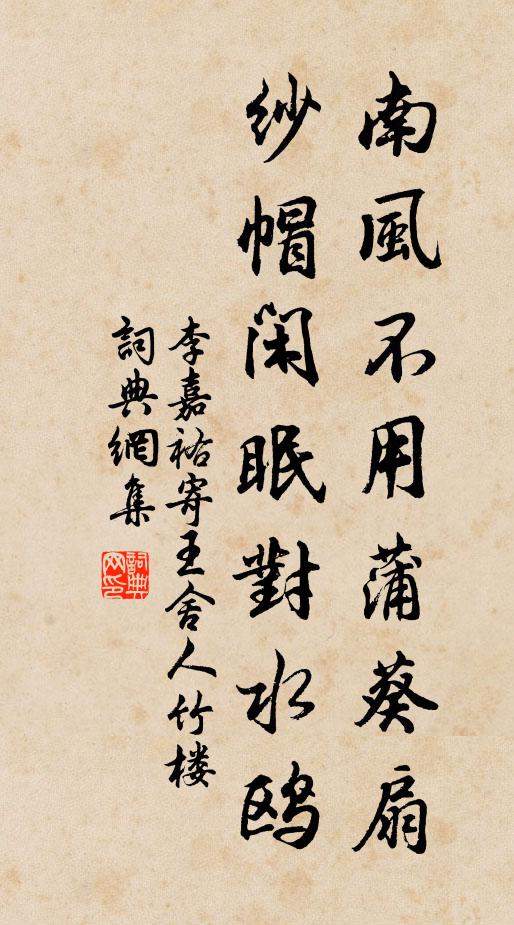 南風不用蒲葵扇
紗帽閑眠對水鸥
李嘉祐寄王舍人竹楼
詞典網集
詞典网印